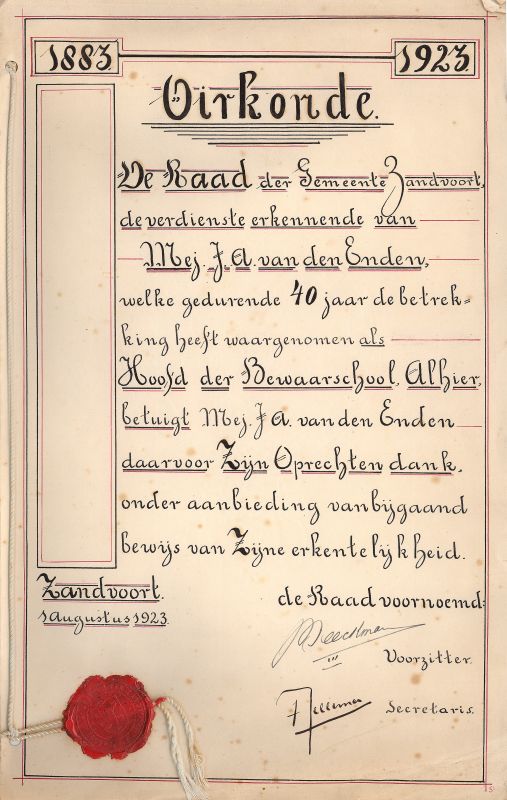 1883 1923
Oirkonde.
De Raad der Gemeente Zandvoort,
de verdienste erkennende van
Mej. J. A. van den Enden,
welke gedurende 40 jaar de betrek=
king heeft waargenomen als
Hoofd der Bewaarschool Alhier,
betuigt Mej. J A. van den Enden
daarvoor Zijn Oprechten dank,
onder aanbieding van bijgaand
bewijs van Zijne erkentelijkheid.
Zandvoort.
1 augustus 1923.
de Raad voornoemd:
Voorzitter.
Secretaris.